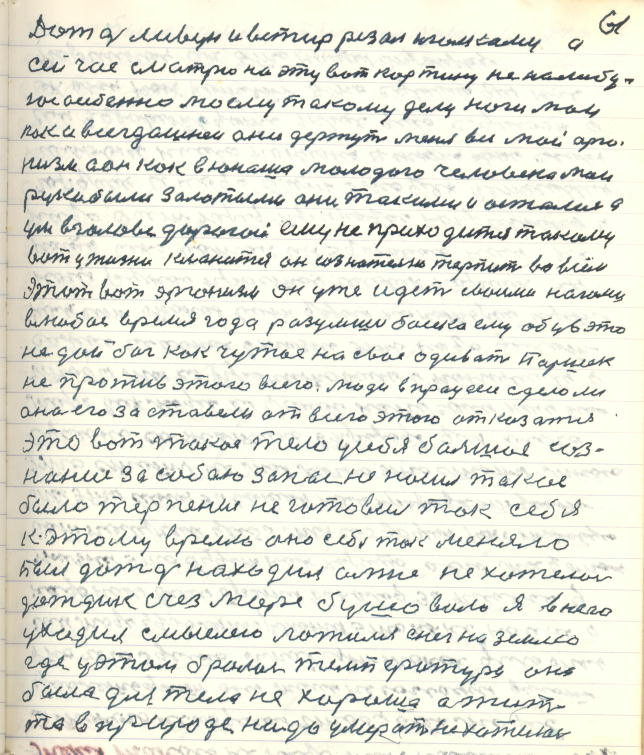 61
Дождь ливун и ветир резал иголками а
сейчас смотрю на эту вот картину не налюбу-
юсь особенно моему такому делу ноги мои
пока всегдашнеи они держут меня ви мой орга-
низм а он как в юнаша молодого человека мои
руки были золотыми они такими и остался
ум в голове дорогой ему не приходится такому
вот у жизни кланятся он сознательно терпит во всём
этот вот эрганизм он уже идет своими ногами
влюбое время года разумнии башка ему обув это
не дай бог как чутое на свое одивать Паршек
не против этого всего. люди в працеси сделали
она его заставели от всего этого отказатия
это вот такое тело у тебя балшое соз-
нание за собаю запас не носил такое
было терпения не готовил ток себя
к. этому время оно себя ток меняло
Был дождь находил а мне не хотелос
дождик счез море бушовало Я в него
уходил смыслею ложился снег на землю
где у этом бралась температура она
была для тела не хороша а жит-
та в природе надо умерать не хотилась